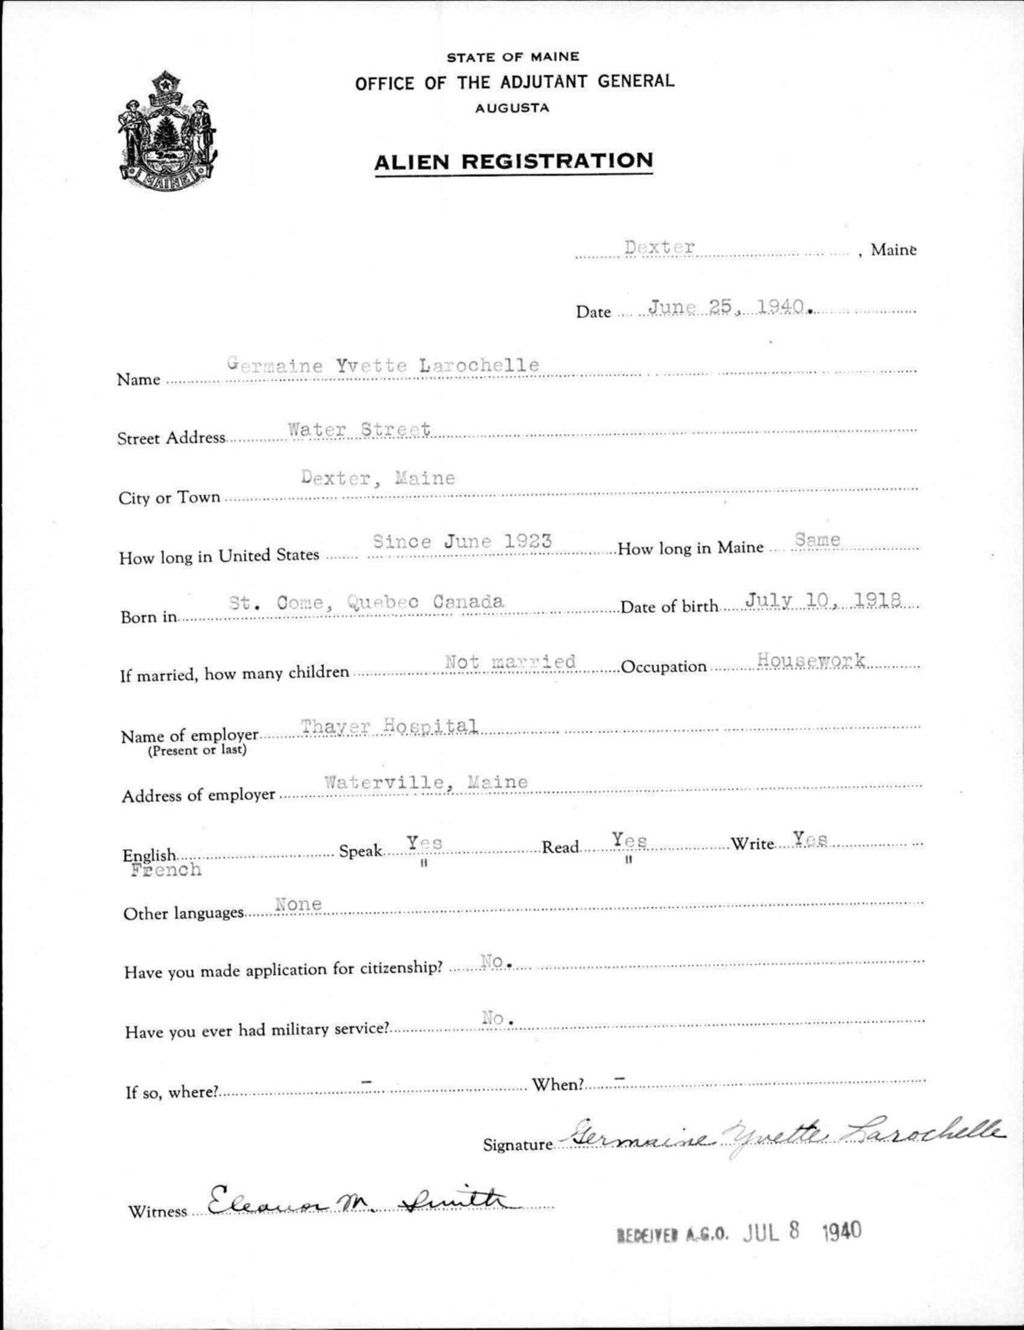 STATE OF MAINE
OFFICE OF THE ADJUTANT GENERAL
AUGUSTA
ALIEN REGISTRATION
MAINE
Dexter, Maine
Date June 25, 1940.
Name Germaine Yvette Larochelle
Street Address Water Street
City or Town Dexter, Maine
How long in United States Since June 1923 How long in Maine Same
Born in St. Come, Quebec Canada Date of birth July 10, 1918
If married, how many children Not married Occupation Housework
Name of employer Thayer Hospital
(Present or last)
Address of employer Waterville, Maine
English Speak Yes Read Yes Write Yes
French " "
Other languages None
Have you made application for citizenship? No.
Have you ever had military service? No.
If so, where? - When? -
Signature Germaine Yvette Larochelle
Witness Eleanor M. Smith
RECEIVED A.G.O. JUL 8 1940